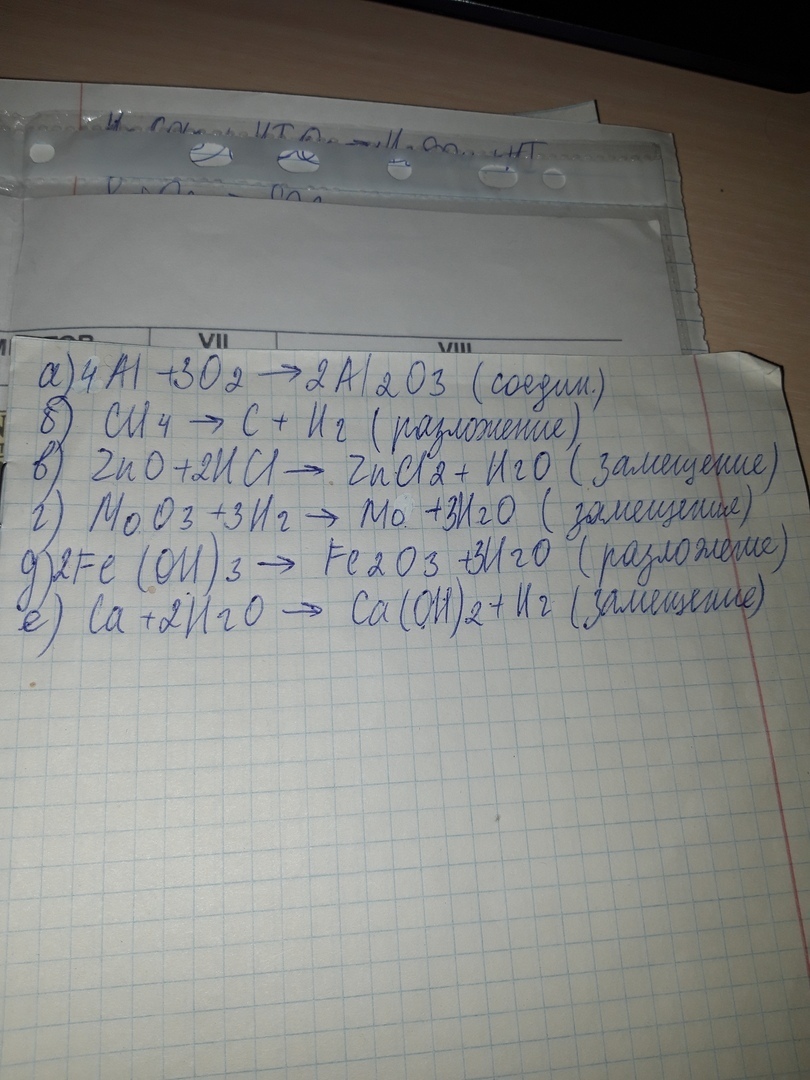 VII
VIII
а) 4Al + 3O2 → 2Al2O3 (соедин.)
б) CH4 → C + H2 (разложение)
в) ZnO + 2HCl → ZnCl2 + H2O (замещение)
г) MoO3 + 3H2 → Mo + 3H2O (замещение)
д) 2Fe(OH)3 → Fe2O3 + 3H2O (разложение)
е) Ca + 2H2O → Ca(OH)2 + H2 (замещение)